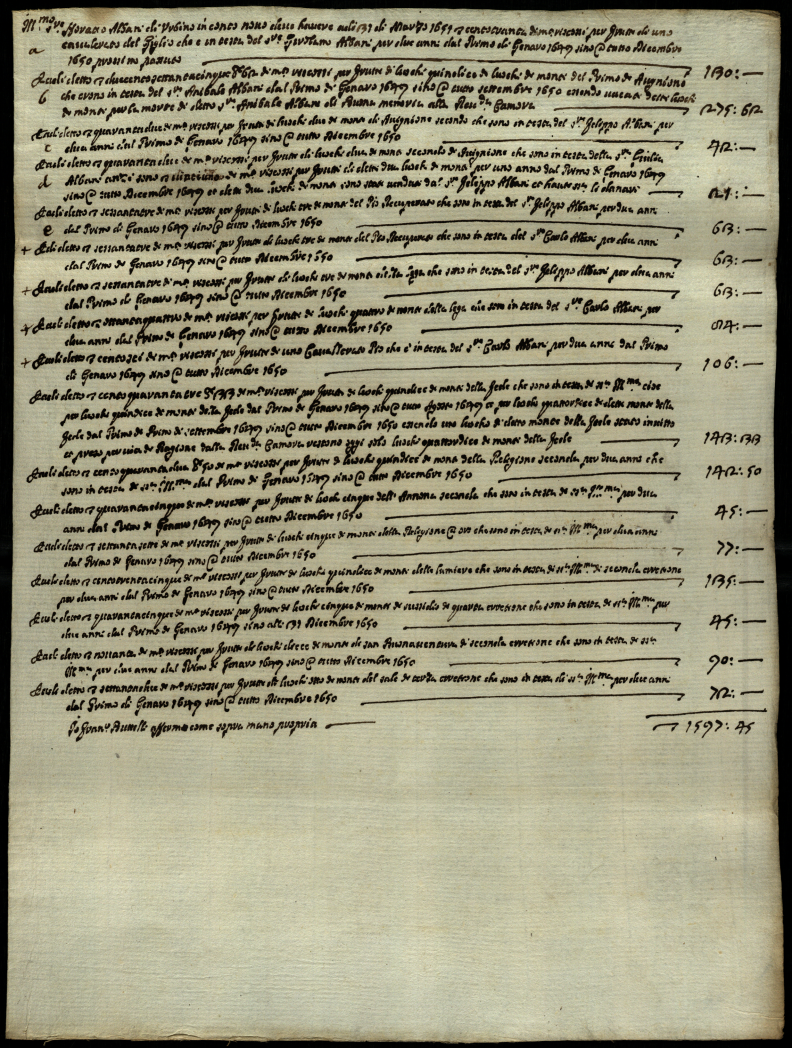 Ill.mo s.re Horatio Albani di Urbino in conto novo deve havere adi 31 di Marzo 1651 ▽ cento trenta di m.ta riscossi per frutti di uno
a cavalierato del Giglio che è in testa del s.re Girolamo Albani per due anni dal Primo di Genaro 1649 sino @ tutto Dicembre
1650 prossimo passato 130: —
E adi detto ▽ duecentosettantacinque 62 di m.ta riscossi per frutti di luochi quindici de luochi de monte del Primo de Avignone
b che erono in testa del s.re Anibale Albani dal Primo di Genaro 1649 sino @ tutto settembre 1650 essendo vacati detti luochi
de monte per la morte di detto s.re Anibale Albani di Buona memoria alla Rev.da Camera 275: 62
E adi detto ▽ quarantadue di m.ta riscossi per frutti di luochi due de monte di Avignone secondo che sono in testa del s.re Joseppe Albani per
c due anni dal Primo di Genaro 1649 sino @ tutto Dicembre 1650 42: —
E adi detto ▽ di m.ta riscossi per frutti di luochi due de monte secondo de Avignone che sono in testa della s.ra Giulia
d Albani di m.ta riscossi per frutti di detti dui luochi de monte per uno anno dal Primo de Genaro 1649
sino @ tutto Dicembre 1649 et detti dui luochi di monte sono stati venduti dal s.re Joseppe Albani et li denari 21: —
E adi detto ▽ sessantatre de m.ta riscossi per frutti di luochi tre de monte del Rio Recuperato che sono in testa del s.re Joseppe Albani per dua anni
e dal Primo di Genaro 1649 sino @ tutto Dicembre 1650 63: —
+ E adi detto ▽ sessantatre de m.ta riscossi per frutti di luochi tre de monte del Rio Recuperato che sono in testa del s.re Carlo Albani per due anni
dal Primo di Genaro 1649 sino @ tutto Dicembre 1650 63: —
+ E adi detto ▽ sessantatre de m.ta riscossi per frutti de luochi tre de monte della lega che sono in testa del s.re Joseppe Albani per due anni
dal Primo di Genaro 1649 sino @ tutto Dicembre 1650 63: —
+ E adi detto ▽ ottantaquattro de m.ta riscossi per frutti de luochi quattro de monte della lega che sono in testa del s.re Carlo Albani per
due anni dal Primo de Genaro 1649 sino @ tutto Dicembre 1650 84: —
+ E adi detto ▽ centosei di m.ta riscossi per frutti de uno Cavalierato Pio che è in testa del s.re Carlo Albani per due anni dal Primo
di Genaro 1649 sino @ tutto Dicembre 1650 106: —
E adi detto ▽ cento quarantatre 33 di m.ta riscossi per frutti di luochi quindici de monte delle Isole che sono in testa de S.S. Ill.ma cioe
per luochi quindici de monte delle Isole dal Primo de Genaro 1649 sino @ tutto Agosto 1649 et per luochi quattordici de detto monte delle
Isole dal Primo de settembre 1649 sino @ tutto Dicembre 1650 essendo uno luocho de detto monte delle Isole stato
et preso per via de dalla Rev.da Camera restono oggi solo luochi quattordici de monte delle Isole 143: 33
E adi detto ▽ cento quarantadua 50 de m.ta riscossi per frutti de luochi quindici de monte della Religione seconda per due anni che
sono in testa de S.S. Ill.ma dal Primo di Genaro 1649 sino @ tutto Dicembre 1650 142: 50
E adi detto ▽ quarantacinque de m.ta riscossi per frutti de luochi cinque dell'Annona seconda che sono in testa de S.S. Ill.ma per dua
anni dal Primo de Genaro 1649 sino @ tutto Dicembre 1650 45: —
E adi detto ▽ settantasette de m.ta riscossi per frutti di luochi cinque de monte della Religione @ che sono in testa de S.S. Ill.ma per dua anni
dal Primo di Genaro 1649 sino @ tutto Dicembre 1650 77: —
E adi detto ▽ centotrentacinque de m.ta riscossi per frutti di luochi quindici de monte delle lumiere che sono in testa de S.S. Ill.ma de seconda erretione
per due anni dal Primo di Genaro 1649 sino @ tutto Dicembre 1650 135: —
E adi detto ▽ quarantacinque de m.ta riscossi per frutti de luochi cinque de monte de sussidio de quarta erretione che sono in testa de S.S. Ill.ma per
due anni dal Primo de Genaro 1649 sino alli 31 Dicembre 1650 45: —
E adi detto ▽ novanta de m.ta riscossi per frutti di luochi dieci de monte di san Buonaventura di seconda erretione che sono in testa de S.S.
Ill.ma per due anni dal Primo de Genaro 1649 sino @ tutto Dicembre 1650 90: —
E adi detto ▽ settantadue de m.ta riscossi per frutti di luochi otto de monte del sale de terza erretione che sono in testa di S.S. Ill.ma per due anni
dal Primo di Genaro 1649 sino @ tutto Dicembre 1650 72: —
Io Fran.o affermo come sopra mano propria ▽ 1597: 45